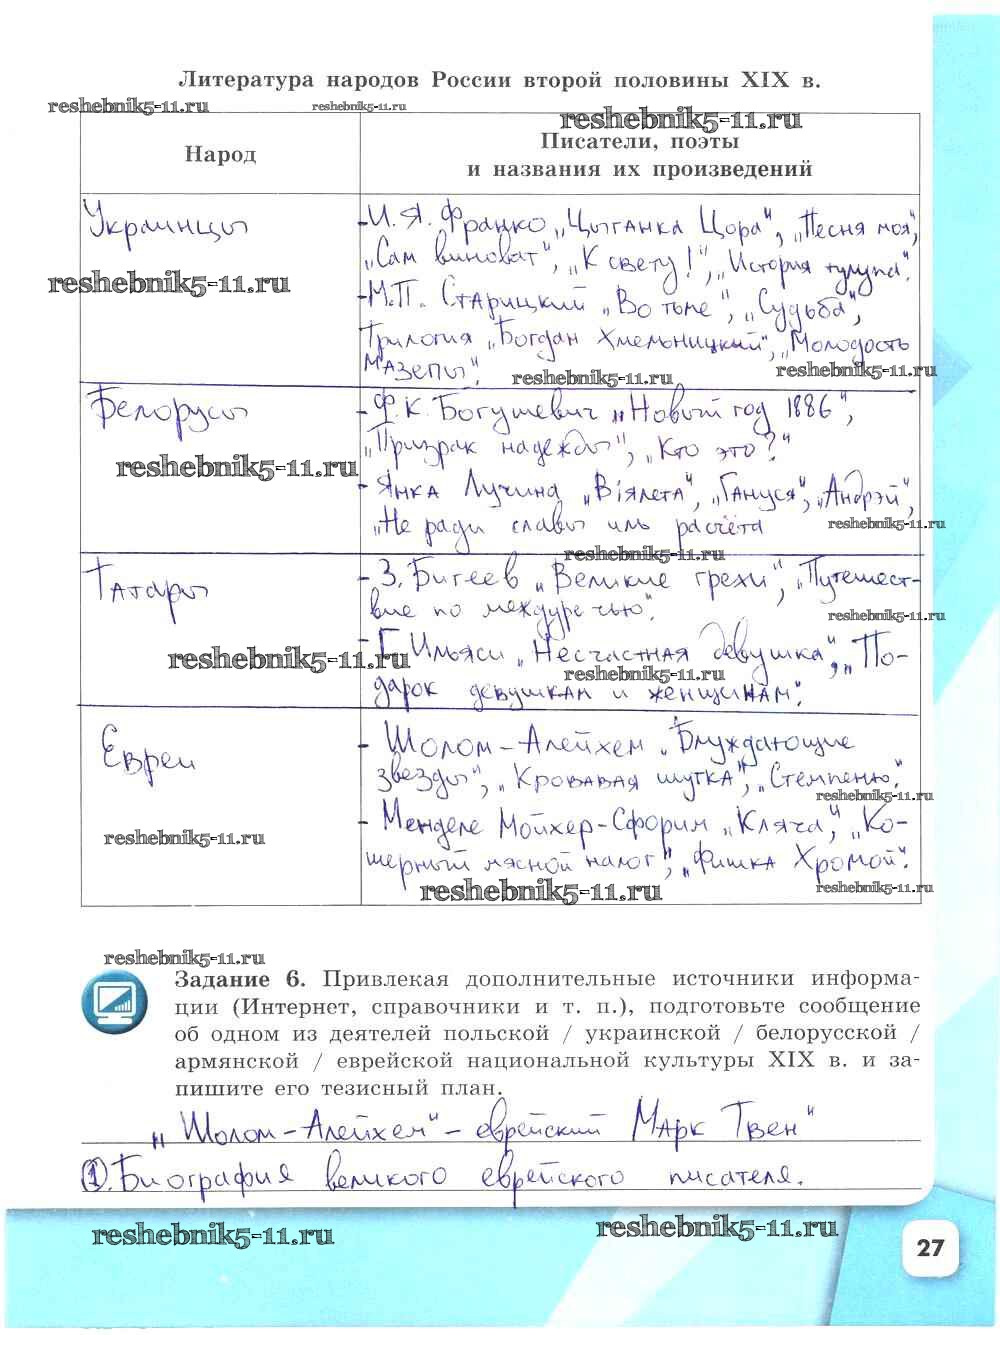 Литература народов России второй половины XIX в.
reshebnik5-11.ru reshebnik5-11.ru
reshebnik5-11.ru
Народ
Писатели, поэты
и названия их произведений
Украинцы
- И. Я. Франко „Цыганка Цора", „Песня моя",
„Сам виноват", „К свету!", „История тулупа".
reshebnik5-11.ru
- М.П. Старицкий „Во тьме", „Судьба",
Трилогия „Богдан Хмельницкий", „Молодость
Мазепы".
reshebnik5-11.ru
reshebnik5-11.ru
Белорусы
- Ф.К. Богушевич „Новый год 1886",
„Призрак надежды", „Кто это?"
reshebnik5-11.ru
- Янка Лучина „Вiялета", „Гануся", „Андрэй",
„Не ради славы иль расчёта
reshebnik5-11.ru
reshebnik5-11.ru
Татары
- З. Бигеев „Великие грехи", „Путешест-
вие по междуречью".
reshebnik5-11.ru
- Г. Ильяси „Несчастная девушка", „По-
reshebnik5-11.ru
reshebnik5-11.ru
дарок девушкам и женщинам".
Евреи
- Шолом-Алейхем „Блуждающие
звезды", „Кровавая шутка", „Стемпеню".
reshebnik5-11.ru
- Менделе Мойхер-Сфорим „Кляча", „Ко-
reshebnik5-11.ru
шерный мясной налог", „Фишка Хромой".
reshebnik5-11.ru
reshebnik5-11.ru
reshebnik5-11.ru
Задание 6. Привлекая дополнительные источники информа-
ции (Интернет, справочники и т. п.), подготовьте сообщение
об одном из деятелей польской / украинской / белорусской /
армянской / еврейской национальной культуры XIX в. и за-
пишите его тезисный план.
„Шолом-Алейхем" - еврейский Марк Твен"
1. Биография великого еврейского писателя.
reshebnik5-11.ru
reshebnik5-11.ru
27